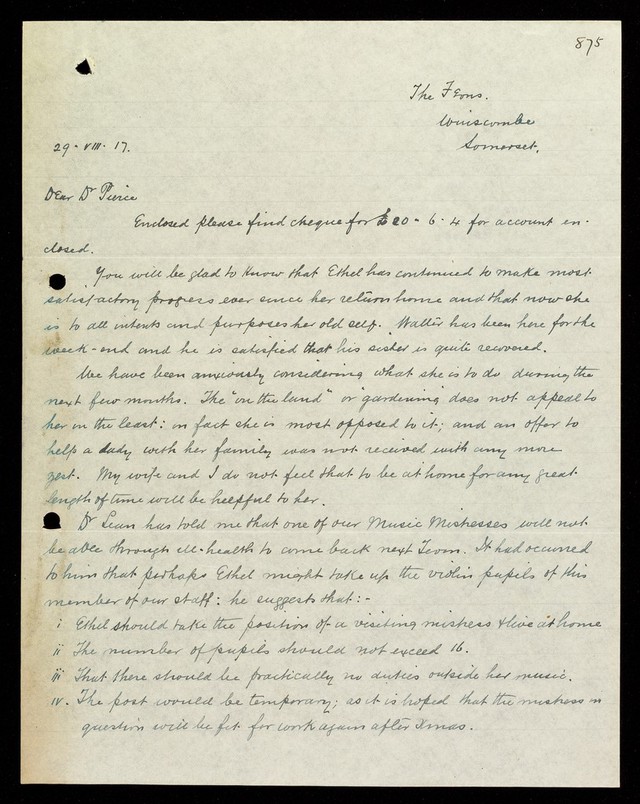 875
The Ferns.
Winscombe
Somerset.
29. VIII. 17.
Dear Dr Pierce
Enclosed please find cheque for £20 - 6 - 4 for account en-
closed.
You will be glad to know that Ethel has continued to make most
satisfactory progress ever since her return home and that now she
is to all intents and purposes her old self. Walter has been here for the
week-end and he is satisfied that his sister is quite recovered.
We have been anxiously considering what she is to do during the
next few months. The "on the land" or "gardening" does not appeal to
her in the least: in fact she is most opposed to it; and an offer to
help a lady with her family was not received with any more
zest. My wife and I do not feel that to be at home for any great
length of time will be helpful to her.
Dr Lean has told me that one of our Music Mistresses will not
be able through ill-health to come back next Term. It had occurred
to him that perhaps Ethel might take up the violin pupils of this
member of our staff: he suggests that:-
i Ethel should take the position of a visiting mistress & live at home
ii The number of pupils should not exceed 16.
iii That there should be practically no duties outside her music.
iv. The post would be temporary; as it is hoped that the mistress in
question will be fit for work again after Xmas.